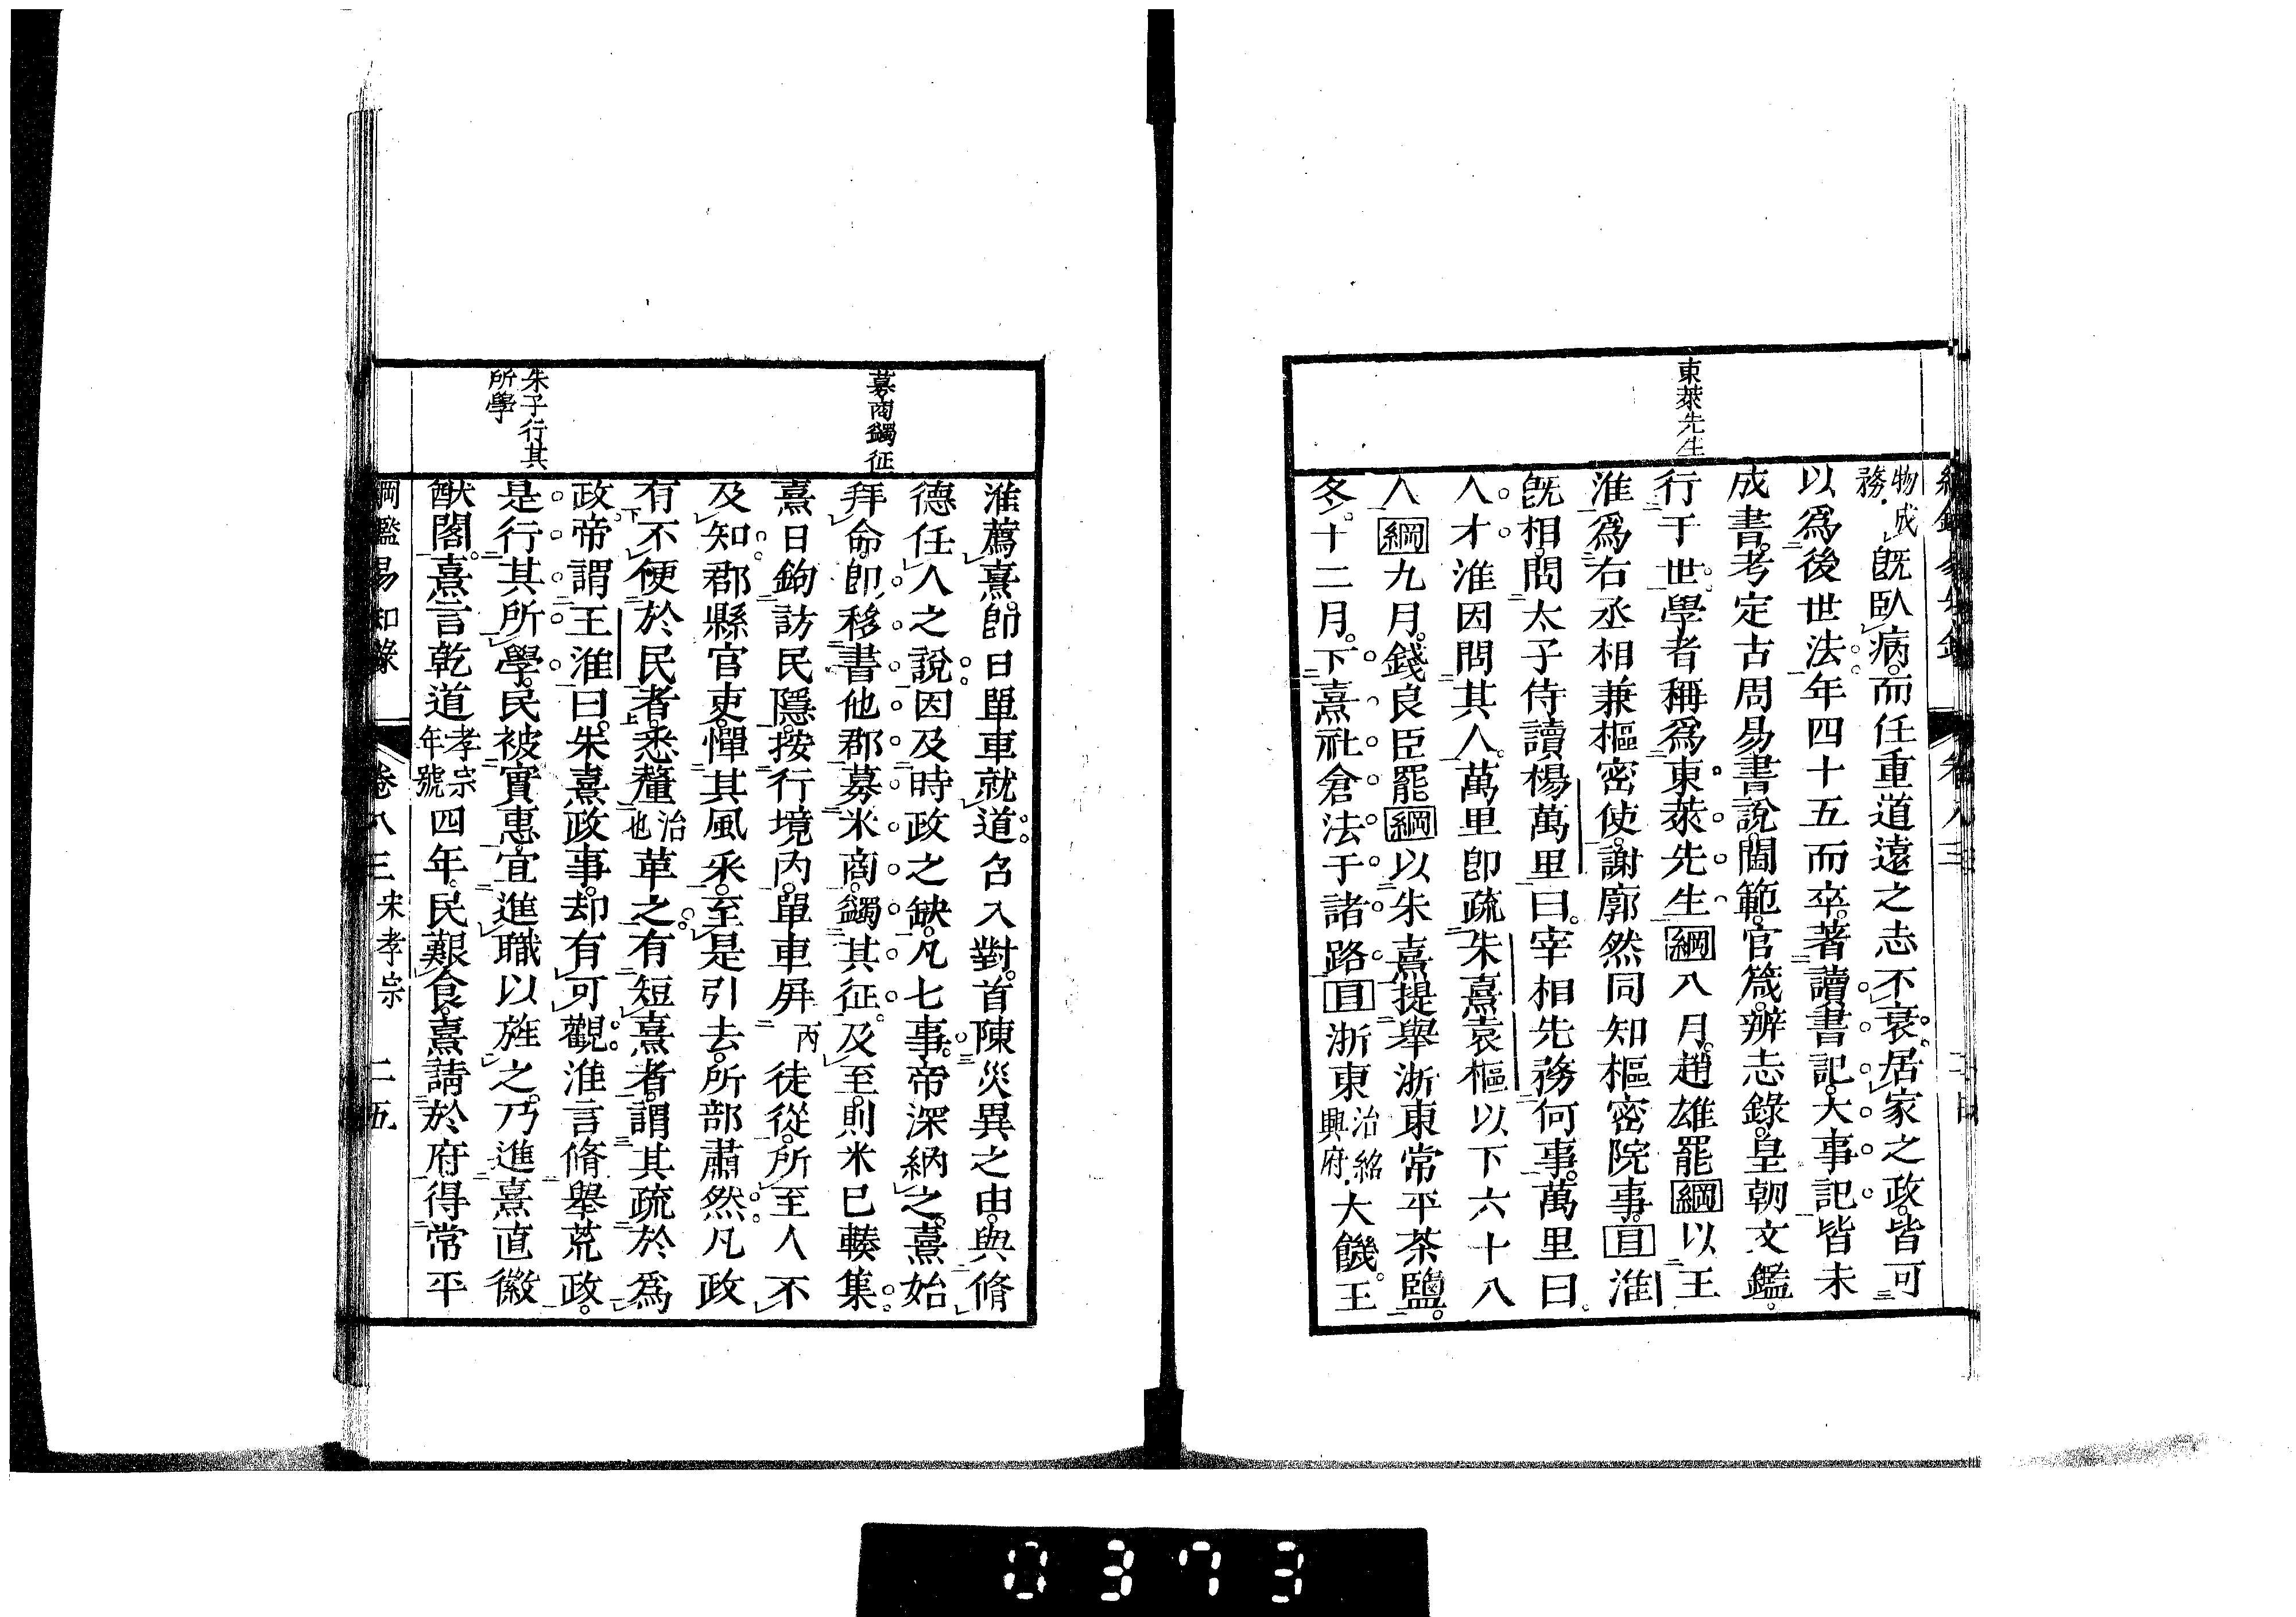 東萊先生
物成務既臥病而任重道遠之志不衰居家之政皆可
以爲後世法年四十五而卒著讀書記大事記皆未
成書考定古周易書說閫範官箴辨志錄皇朝文鑑
行于世學者稱爲東萊先生綱八月趙雄罷綱以王
淮爲右丞相兼樞密使謝廓然同知樞密院事目淮
既相問太子侍讀楊萬里曰宰相先務何事萬里曰
人才淮因問其人萬里卽疏朱熹袁樞以下六十八
人綱九月錢良臣罷綱以朱熹提舉浙東常平茶鹽
冬十二月下熹社倉法于諸路目浙東治紹興府大饑王
募商蠲征
朱子行其
所學
淮薦熹卽日單車就道召入對首陳災異之由與脩
德任人之說因及時政之缺凡七事帝深納之熹始
拜命卽移書他郡募米商蠲其征及至則米已輳集
熹日鉤訪民隱按行境内單車屏丙徒從所至人不
及知郡縣官吏憚其風采至是引去所部肅然凡政
有不便於民者悉釐治也革之有短熹者謂其疏於爲
政帝謂王淮曰朱熹政事却有可觀淮言脩舉荒政
是行其所學民被實惠宜進職以旌之乃進熹直徽
猷閣熹言乾道孝宗年號四年民艱食熹請於府得常平
綱鑑易知錄 卷八三 宋孝宗 二五